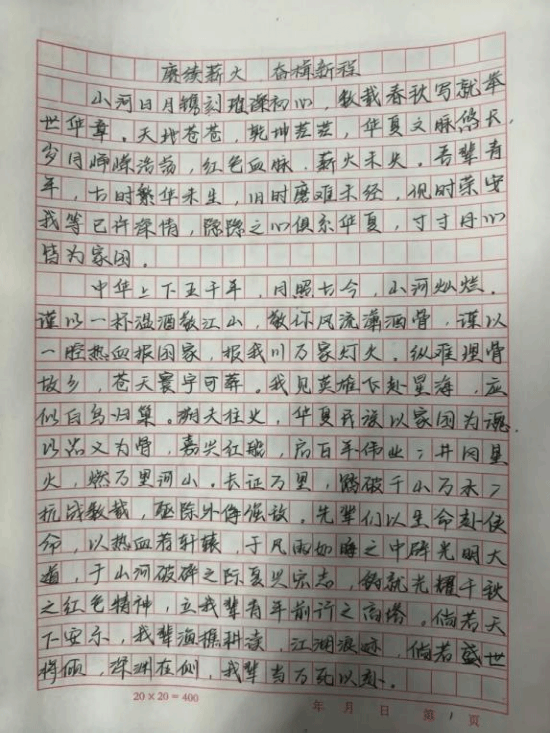 赓续薪火 奋楫新程
山河日月镌刻璀璨初心,数载春秋写就举
世华章。天地苍苍,乾坤茫茫,华夏文脉悠长,
岁月师峰浩荡,红色血脉,薪火未失。吾辈青
年,古时繁华未生,旧时磨难未经,现时荣安
我等已许深情,隐隐之心俱系华夏,寸寸丹心
皆为家国。
中华上下五千年,月照古今,山河灿烂。
谨以一杯温酒敬江山,敬你风流潇洒骨,谨以
一腔热血报国家,报我川万家灯火。纵难埋骨
故乡,苍天寰宇可葬。我见英雄飞赴星海,应
似百鸟归巢。溯天往史,华夏民族以家国为魂,
以品义为骨,嘉兴红船,启百年伟业;井冈星
火,燃万里河山。长征万里,踏破千山万水;
抗战数载,驱除外侮强敌。先辈们以生命赴使
命,以热血荐轩辕,于风雨如晦之中辟光明大
道,于山河破碎之际复兴宏志,铸就光耀千秋
之红色精神,立我辈青年前行之高塔。倘若天
下安乐,我辈渔樵耕读,江湖浪迹,倘若盛世
将倾,深渊在侧,我辈当万死以赴。
20×20=400
年 月 日 第 1 页